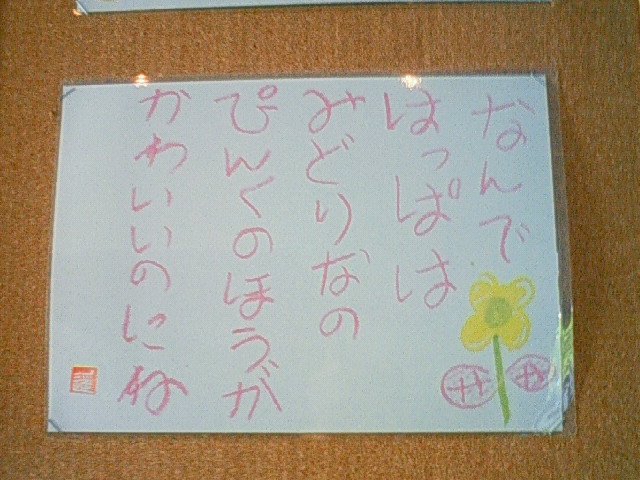 なんで
はっぱは
みどりなの
ぴんくのほうが
かわいいのにね